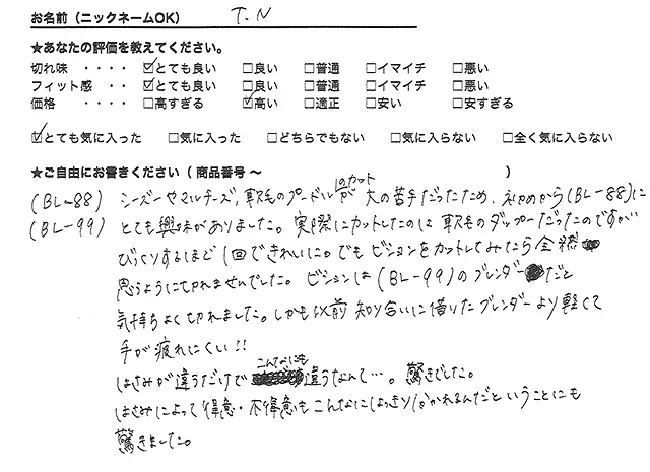 お名前（ニックネームOK） T.N
★あなたの評価を教えてください。
切れ味 ・・・・ ☑とても良い □良い □普通 □イマイチ □悪い
フィット感 ・・・・ ☑とても良い □良い □普通 □イマイチ □悪い
価格 ・・・・ □高すぎる ☑高い □適正 □安い □安すぎる
☑とても気に入った □気に入った □どちらでもない □気に入らない □全く気に入らない
★ご自由にお書きください（ 商品番号～ ）
(BL-88) シーズーやマルチーズ、軟毛のプードルのカットが大の苦手だったため、初めから(BL-88)に
(BL-99) とても興味がありました。実際にカットしたのは軟毛のダップーだったのですが
びっくりするほど1回できれいに。でもビションをカットしてみたら全然
思うように切れませんでした。ビションは(BL-99)のブレンダーだと
気持ちよく切れました。しかも以前知り合いに借りたブレンダーより軽くて
手が疲れにくい!!
はさみが違うだけでこんなにも違うなんて…。驚きでした。
はさみによって得意・不得意もこんなにはっきりわかれるんだということにも
驚きました。